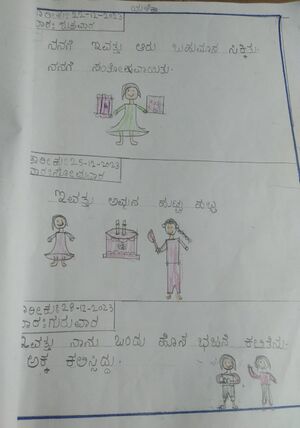 ಯಳಿಕಾ
ತಾರೀಕು:22-12-2023
ವಾರ: ಶುಕ್ರವಾರ
ನನಗೆ ಇವತ್ತು ಆರು ಬಹುಮಾನ ಸಿಕ್ಕಿತು.
ನನಗೆ ಸಂತೋಷವಾಯಿತು.
ತಾರೀಕು:25-12-2023
ವಾರ:ಸೋಮವಾರ
ಇವತ್ತು ಅಮ್ಮನ ಹುಟ್ಟು ಹಬ್ಬ
ತಾರೀಕು:28-12-2023
ವಾರ:ಗುರುವಾರ
ಇವತ್ತು ನಾನು ಒಂದು ಹೊಸ ಭಜನೆ ಕಲಿತೆನು.
ಅಕ್ಕ ಕಲಿಸಿದ್ದು.